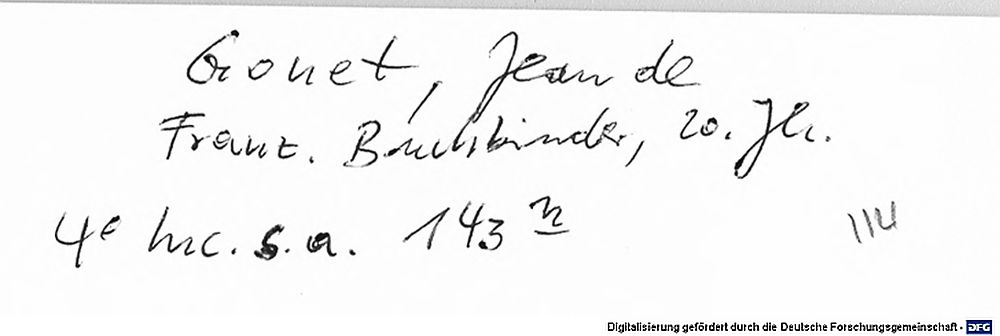 Gonet, Jean de
Franz. Buchbinder, 20. Jh.
4° Inc. s. a. 143 n
114
Digitalisierung gefördert durch die Deutsche Forschungsgemeinschaft - DFG